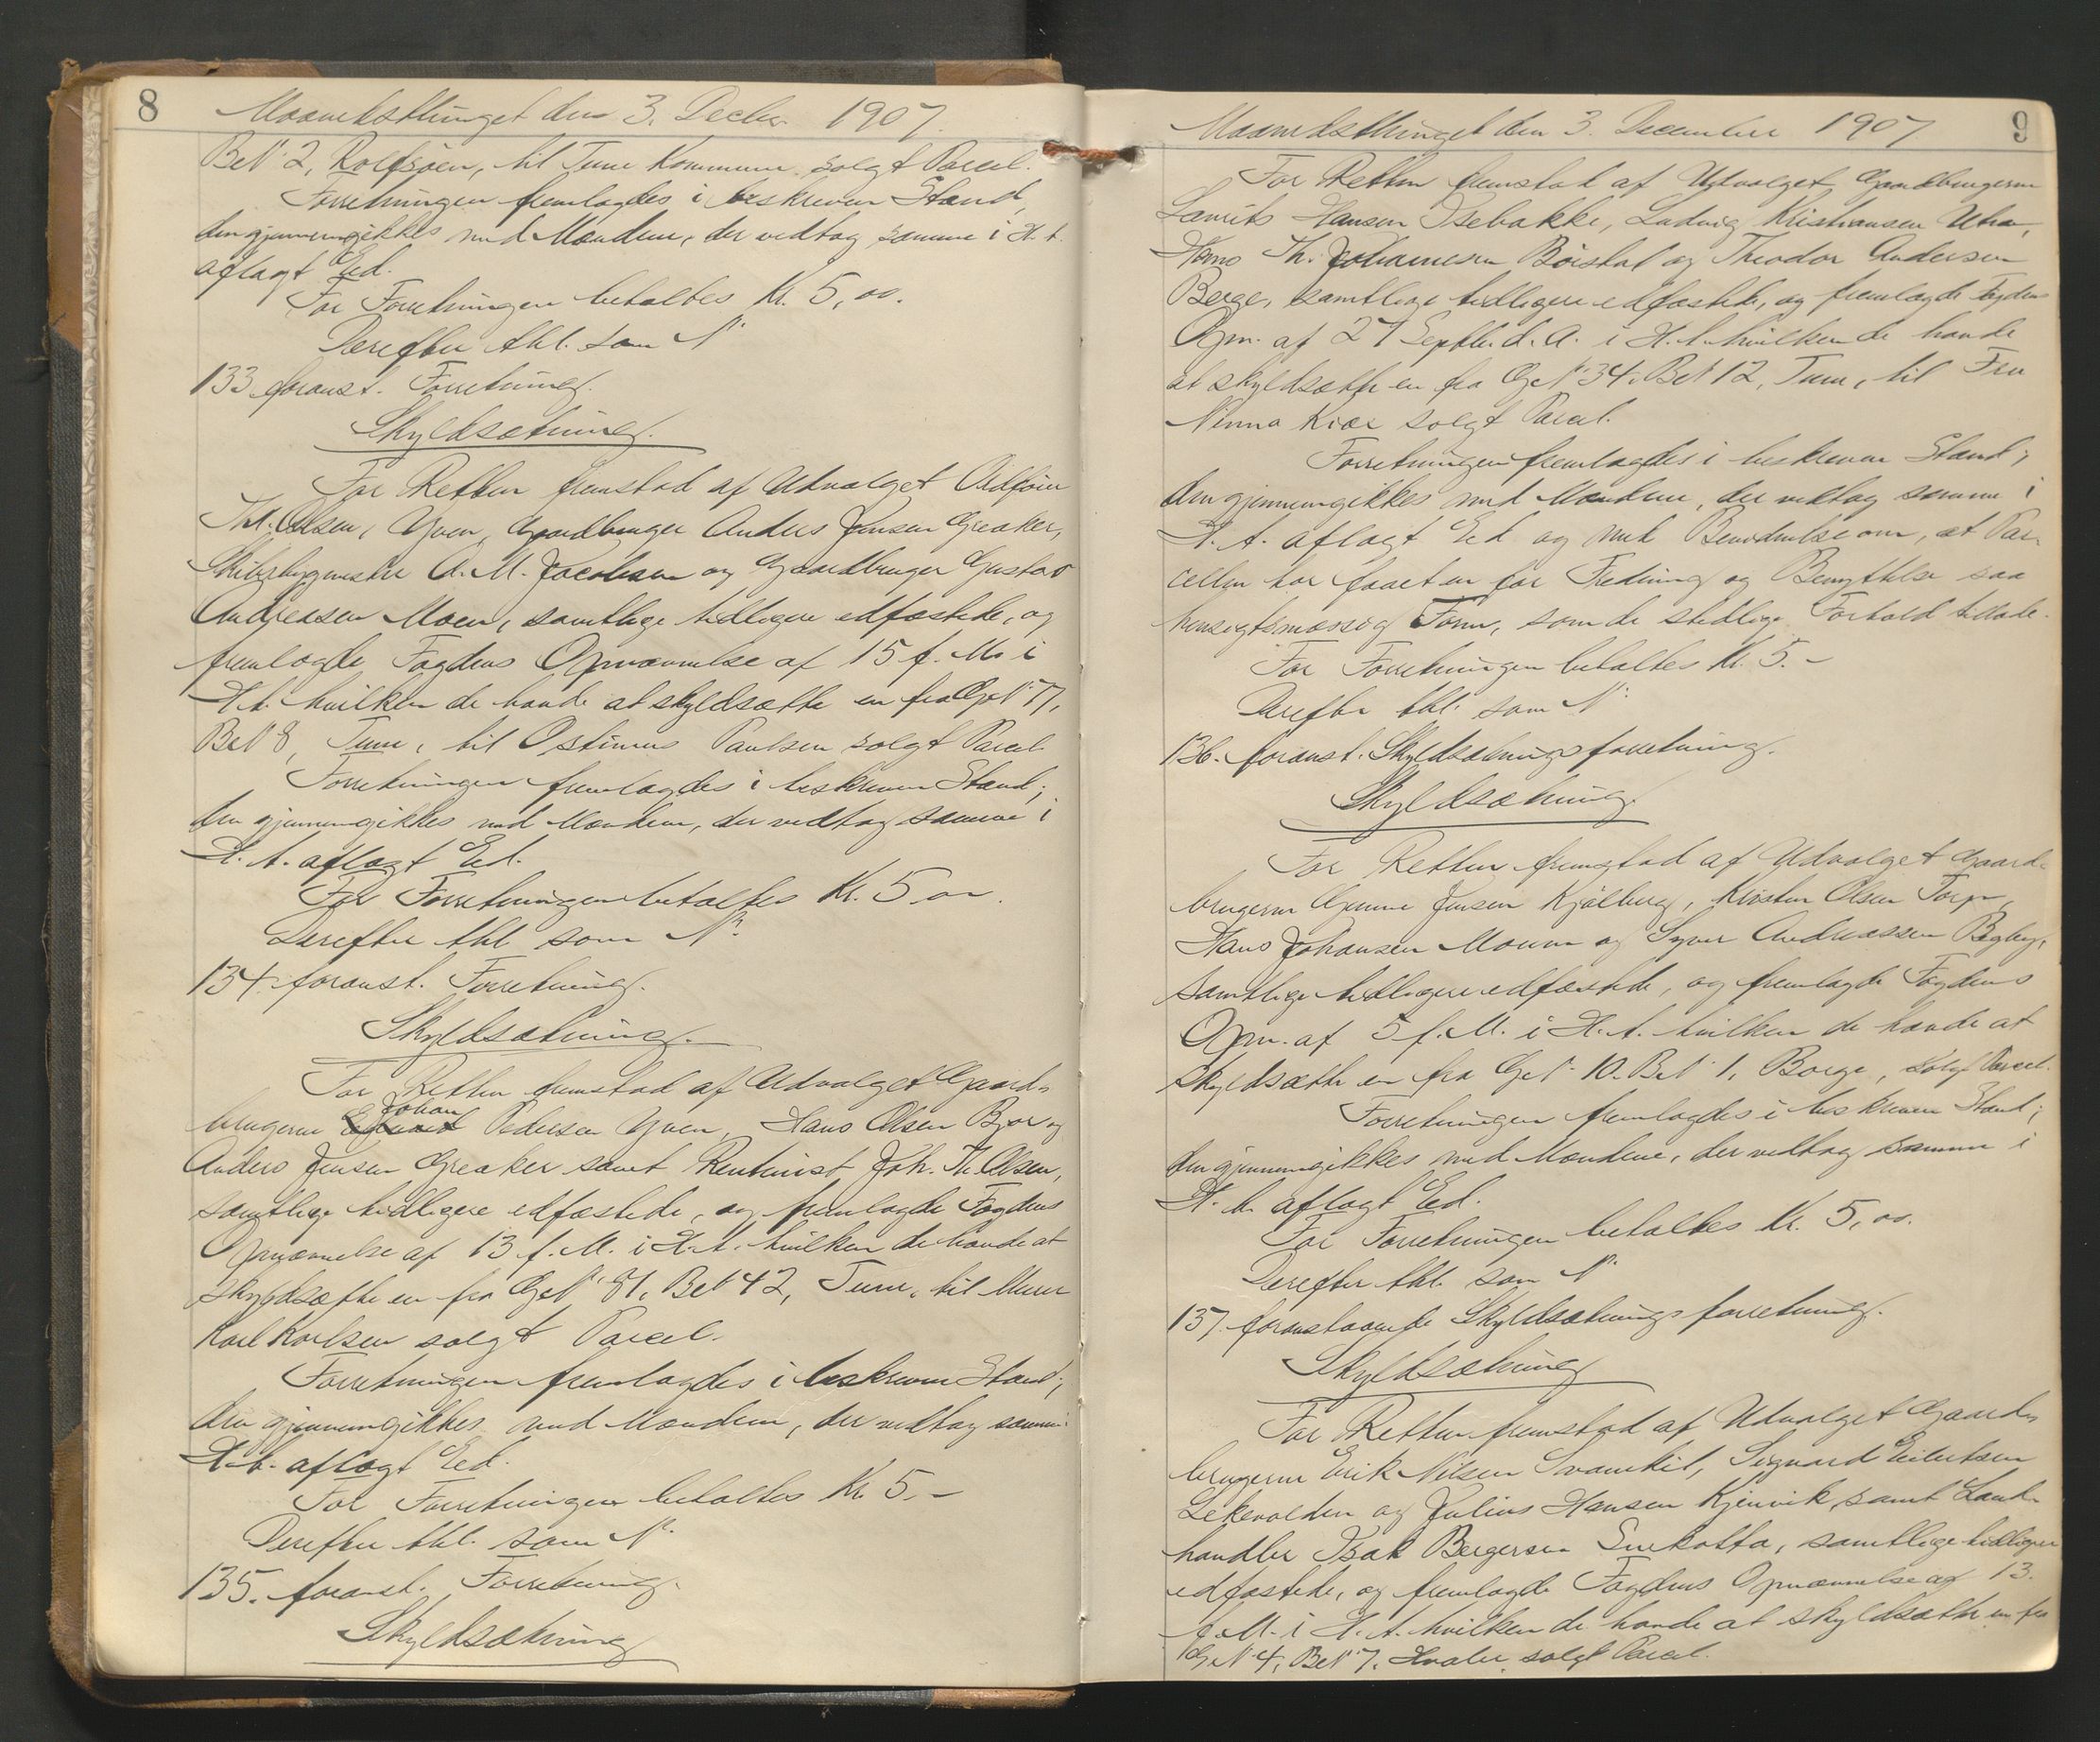 8
Maanedsthinget den 3. Decbr. 1907.
BeN° 2, Rolfsøen, til Tune Kommune solgt Parcel.
Forretningen fremlagdes i beskreven Stand,
den gjennemgikkes med Mændene, der vedtog samme i H. t.
aflagt Ed.
For Forretningen betaltes Kr. 5,00.
Derefter thl. som N°
133 foranst. Forretning.
Skyldsætning.
For Retten fremstod af Udvalget
Th. Olsen, Yven, Gaardbruger Anders Jensen Greaker,
Skibsbygmester A. M. Jacobsen og Gaardbruger Gustav
Andreasen Moen, samtlige tidligere edfæstede, og
fremlagde Fogdens Opnævnelse af 15 f. M. i
H. t. hvilken de havde at skyldsætte en fra GeN° 77,
BeN° 8, Tune, til Ostinius Paulsen solgt Parcel.
Forretningen fremlagdes i beskreven Stand;
den gjennemgikkes med Mændene, der vedtog samme i
H. t. aflagt Ed.
For Forretningen betaltes Kr. 5,00.
Derefter thl som N°
134. foranst. Forretning.
Skyldsætning.
For Retten fremstod af Udvalget Gaard-
brugerne Johan Pedersen Yven, Hans Olsen Bjor og
Anders Jensen Greaker samt Rentenist Joh. Th. Olsen,
samtlige tidligere edfæstede, og fremlagde Fogdens
Opnævnelse af 13 f. M. i H. t. hvilken de havde at
skyldsætte en fra GeN° 81, BeN° 42, Tune, til Murer
Karl Karlsen solgt Parcel.
Forretningen fremlagdes i beskreven Stand;
den gjennemgikkes med Mændene, der vedtog samme i
H. t. aflagt Ed.
For Forretningen betaltes Kr. 5.–
Derefter thl. som N°
135. foranst. Forretning.
Skyldsætning
9
Maanedsthinget den 3. December 1907
For Retten fremstod af Udvalget Gaardbrugerne
Laurits Hansen Isebakke, Ludvig Kristiansen
Hans Th. Johannesen Böistad og Theodor Andersen
Berge, samtlige tidligere edfæstede, og fremlagde Fogdens
Opn. af 27 Septbr. d. A. i H. t. hvilken de havde
at skyldsætte en fra GeN° 34, BeN° 12, Tune, til Fru
Ninna Kiær solgt Parcel.
Forretningen fremlagdes i beskreven Stand;
den gjennemgikkes med Mændene, der vedtog samme i
H. t. aflagt Ed og med Benedn̄else om, at Par-
cellen har faaet en for Fredning og Benyttelse saa
hensigtsmæssig Form, som de stedlige Forhold tillade.
For Forretningen betaltes Kr. 5.–
Derefter thl. som N°
136. foranst. Skyldsætningsforretning.
Skyldsætning.
For Retten fremstod af Udvalget Gaard-
brugerne Jensen Kjølberg, Kirsten Olsen Torp,
Hans Johansen Moum og Syver Andreassen Begby,
samtlige tidligere edfæstede, og fremlagde Fogdens
Opn. af 5 f. M. i H. t. hvilken de havde at
skyldsætte en fra GeN° 10. BeN° 1, Borge, solgt Parcel.
Forretningen fremlagdes i beskreven Stand;
den gjennemgikkes med Mændene, der vedtog samme i
H. t. aflagt Ed.
For Forretningen betaltes Kr. 5,00.
Derefter thl. som N°
137. foranstaaende Skyldsætningsforretning.
Skyldsætning
For Retten fremstod af Udvalget Gaard-
brugerne Erik Nilsen Svanekil, Sigvard Eilertsen
Lekevolden og Julius Hansen Kjenvik, samt Land-
handler Isak Bergersen Snekotta, samtlige tidligere
edfæstede, og fremlagde Fogdens Opnævnelse af 13.
f. M. i H. t. hvilken de havde at skyldsætte en fra
GeN° 4, BeN° 7, Hvaler, solgt Parcel.